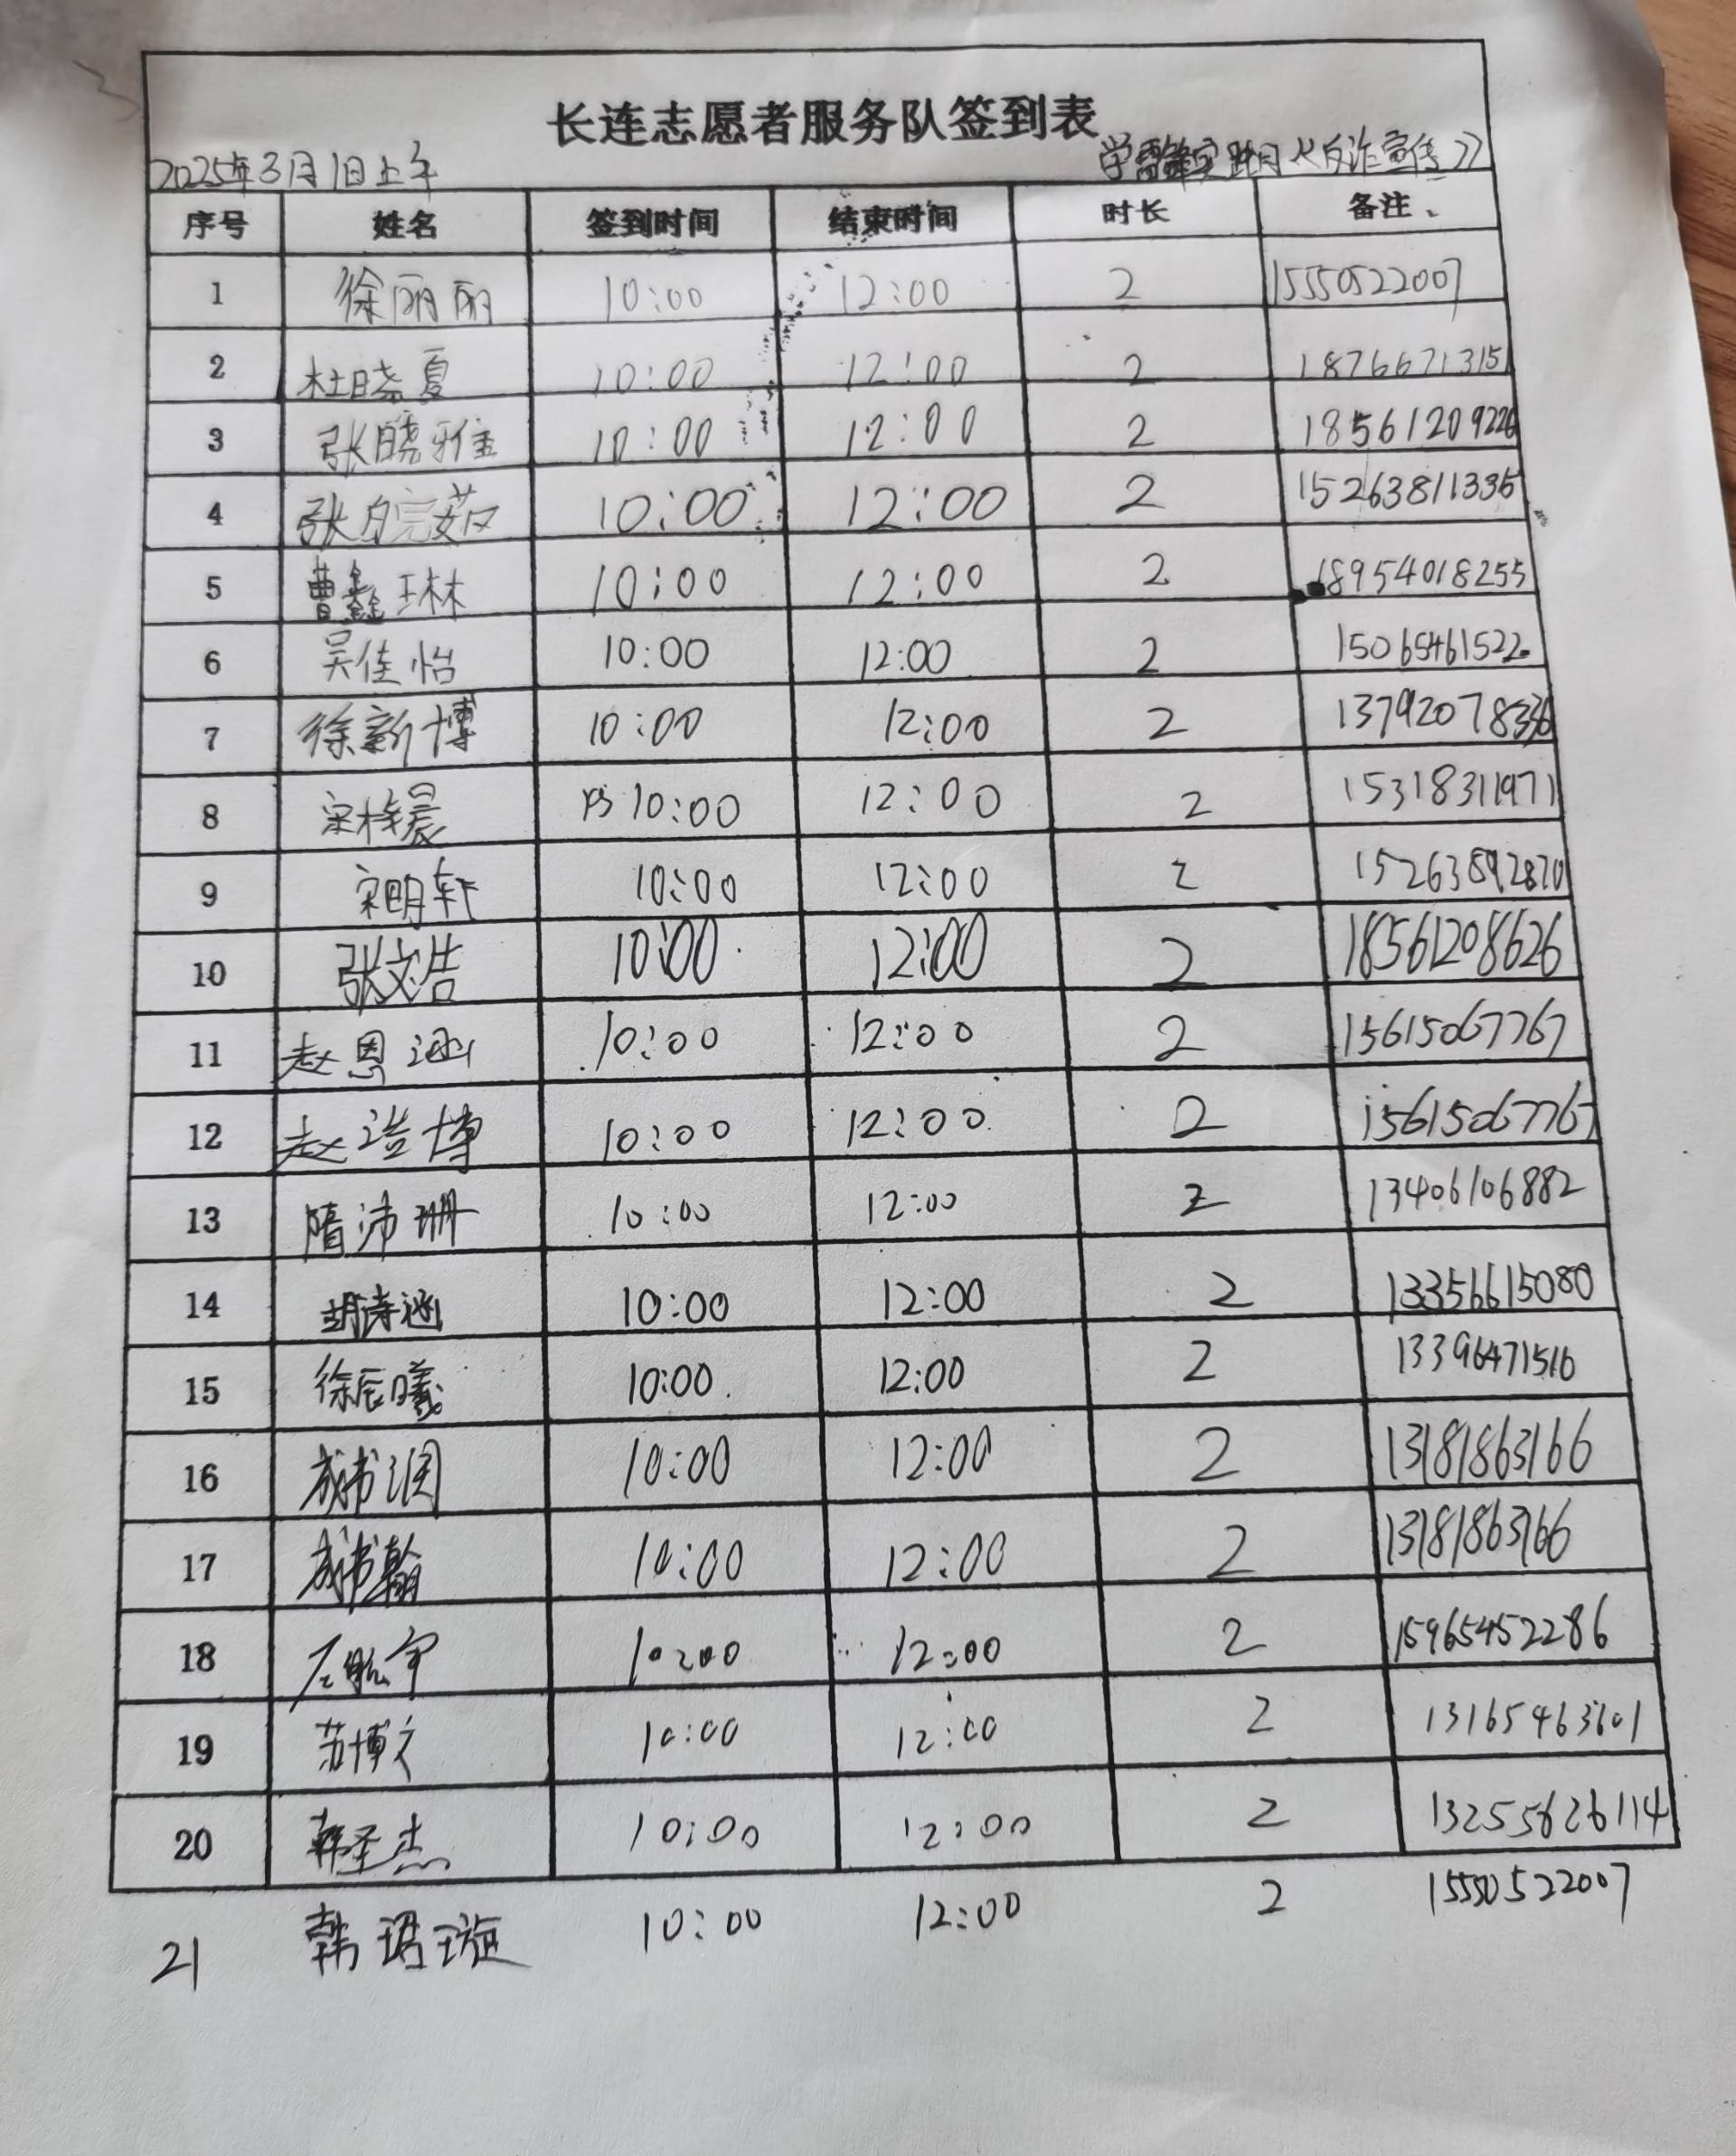 长连志愿者服务队签到表
2025年3月1日上午 学雷锋实践月《反诈宣传》
序号 姓名 签到时间 结束时间 时长 备注、
1 徐丽丽 10:00 12:00 2 15550522007
2 杜晓夏 10:00 12:00 2 18766713151
3 张晓雅 10:00 12:00 2 18561209226
4 张月完茹 10:00 12:00 2 15263811335
5 曹鑫琳 10:00 12:00 2 18954018255
6 吴佳怡 10:00 12:00 2 15065461522
7 徐新博 10:00 12:00 2 13792078336
8 宋梓晨 10:00 12:00 2 15318311971
9 宋明轩 10:00 12:00 2 15263892870
10 张文浩 10:00 12:00 2 18561208626
11 赵恩涵 10:00 12:00 2 15615067767
12 赵浩博 10:00 12:00 2 15615067767
13 隋沛珊 10:00 12:00 2 13406106882
14 胡诗涵 10:00 12:00 2 13356615080
15 徐辰曦 10:00 12:00 2 13396471516
16 成书润 10:00 12:00 2 13181863166
17 成书翰 10:00 12:00 2 13181863166
18 航宇 10:00 12:00 2 15965452286
19 苏博文 10:00 12:00 2 13165463601
20 韩圣杰 10:00 12:00 2 13255626114
21 韩珺璇 10:00 12:00 2 15550522007